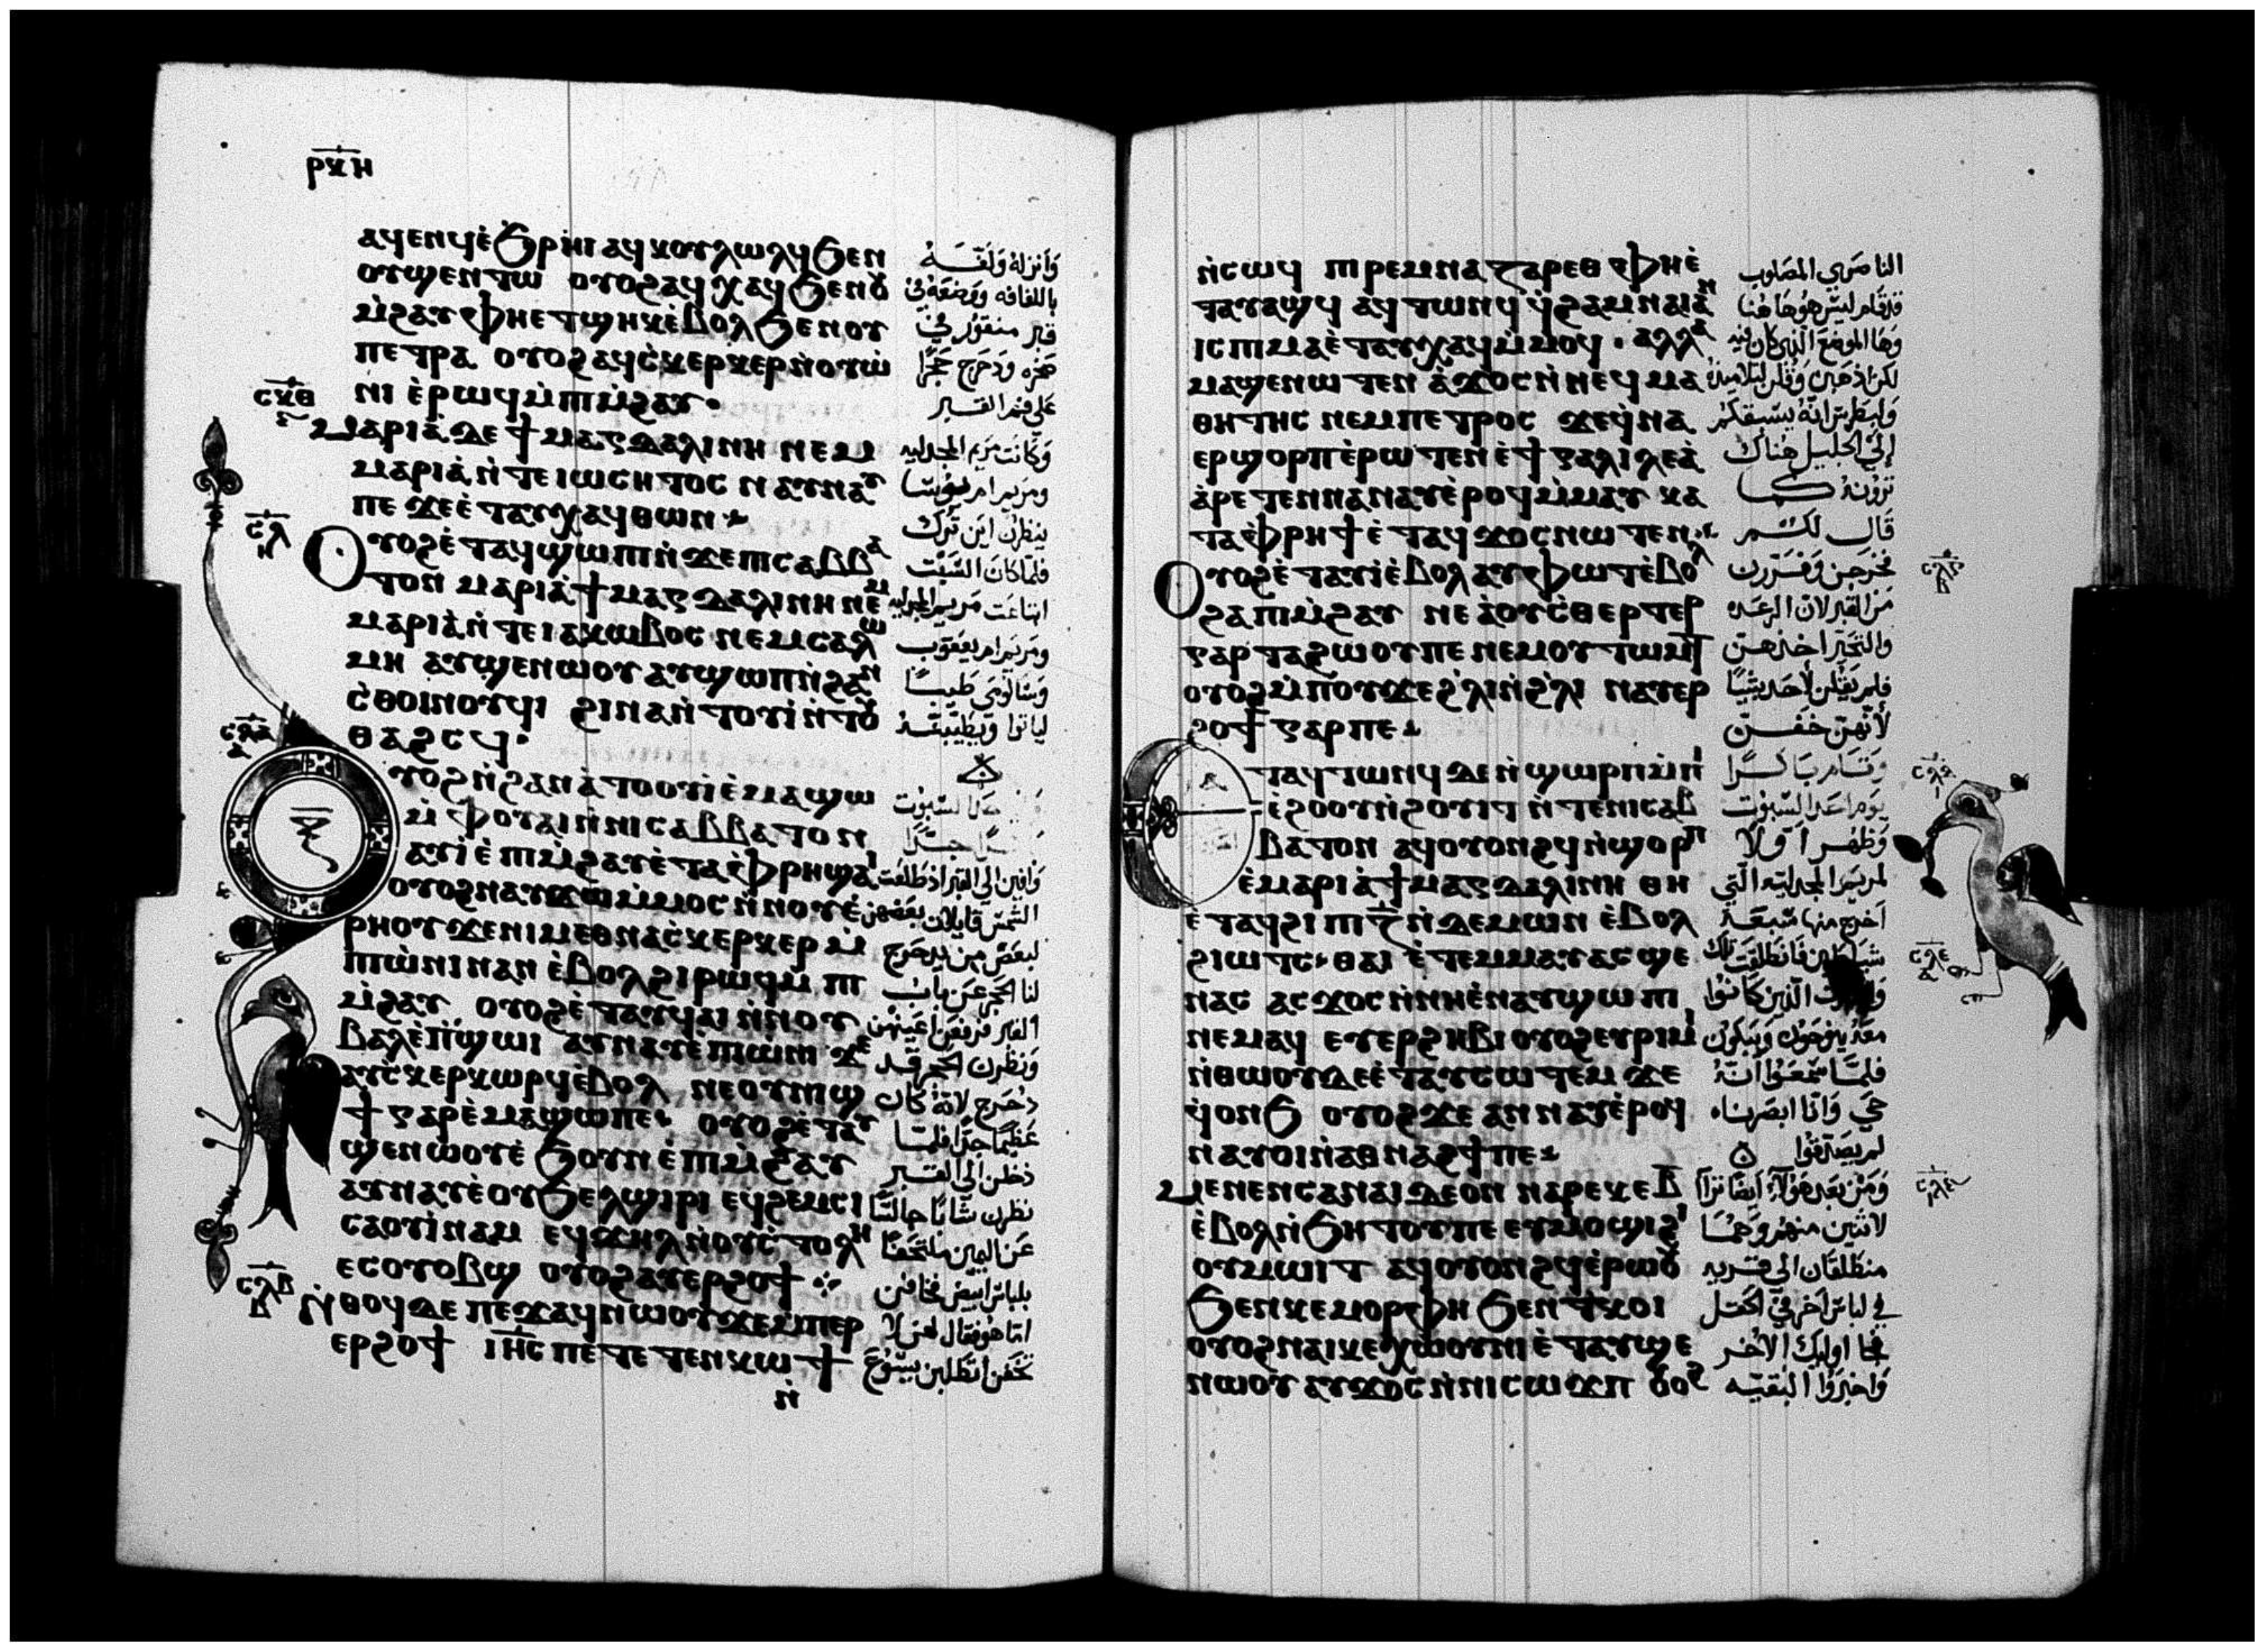 ⲣⲕⲏ
ⲁϥⲉⲛϥⲉ̀ϧⲣⲏⲓ ⲁϥⲕⲟⲩⲗⲱⲗϥ ϧⲉⲛ
ⲟⲩϣⲉⲛⲧⲱ ⲟⲩⲟϩ ⲁϥⲭⲁϥ ϧⲉⲛⲟⲩ
ⲙ̀ϩⲁⲩ ⲫⲏⲉⲧϣⲏⲕ ⲉ̀ⲃⲟⲗ ϧⲉⲛⲟⲩ
ⲡⲉⲧⲣⲁ ⲟⲩⲟϩ ⲁϥⲥ̀ⲕⲉⲣⲕⲉⲣ ⲛ̀ⲟⲩⲱ̀
ⲛⲓ ⲉ̀ⲣⲱϥ ⲙ̀ⲡⲓⲙ̀ϩⲁⲩ.
ⲥⲕⲑ
ⲙⲁⲣⲓⲁ̀ ⲇⲉ ϯⲙⲁⲅⲇⲁⲗⲓⲛⲏ ⲛⲉⲙ
ⲙⲁⲣⲓⲁ̀ ⲛ̀ⲧⲉ ⲓⲱⲥⲏⲧⲟⲥ ⲛⲁⲩⲛⲁⲩ
ⲡⲉ ϫⲉ ⲉ̀ⲧⲁⲩⲭⲁϥ ⲑⲱⲛ
ⲥⲗ
ⲟⲩⲟϩ ⲉ̀ⲧⲁϥϣⲱⲡⲓ ⲛ̀ϫⲉ ⲡⲓⲥⲁⲃⲃⲁ
ⲧⲟⲛ ⲙⲁⲣⲓⲁ̀ ϯⲙⲁⲅⲇⲁⲗⲓⲛⲏ ⲛⲉⲙ
ⲙⲁⲣⲓⲁ̀ ⲛ̀ⲧⲉ ⲓⲁⲕⲱⲃⲟⲥ ⲛⲉⲙ ⲥⲁⲗⲱ
ⲙⲏ ⲁⲩϣⲉⲛⲱⲟⲩ ⲁⲩϣⲱⲡ ⲛ̀ϩⲁⲛ
ⲥ̀ⲑⲟⲓⲛⲟⲩϥⲓ ϩⲓⲛⲁ ⲛ̀ⲧⲟⲩⲓ̀ ⲛ̀ⲧⲟⲩ
ⲑⲁϩⲥϥ.
ⲥⲗⲁ
ⲟⲩⲟϩ ⲛ̀ϩⲁⲛⲁ̀ⲧⲟⲟⲩⲓ̀ ⲉ̀ⲙⲁϣⲱ
ⲙ̀ⲫⲟⲩⲁⲓ ⲛ̀ⲛⲓⲥⲁⲃⲃⲁⲧⲟⲛ
ⲁⲩⲓ̀ ⲉ̀ⲡⲓⲙ̀ϩⲁⲩ ⲉ̀ⲧⲁ ⲫ̀ⲣⲏ ϣⲁⲓ
ⲟⲩⲟϩ ⲛⲁⲩϫⲱ ⲙ̀ⲙⲟⲥ ⲛ̀ⲛⲟⲩⲉ̀
ⲣⲏⲟⲩ ϫⲉ ⲛⲓⲙ ⲉⲑⲛⲁⲥ̀ⲕⲉⲣⲕⲉⲣ ⲙ̀
ⲡⲓⲱ̀ⲛⲓ ⲛⲁⲛ ⲉ̀ⲃⲟⲗ ϩⲓⲣⲱϥ ⲙ̀ⲡⲓ
ⲙ̀ϩⲁⲩ ⲟⲩⲟϩ ⲉ̀ⲧⲁⲩϥⲁⲓ ⲛ̀ⲛⲟⲩ
ⲃⲁⲗ ⲉ̀ⲡ̀ϣⲱⲓ ⲁⲩⲛⲁⲩ ⲉ̀ⲡⲓⲱ̀ⲛⲓ ϫⲉ
ⲁⲩⲥ̀ⲕⲉⲣⲕⲱⲣϥ ⲉ̀ⲃⲟⲗ ⲛⲉ ⲟⲩⲛⲓϣ
ϯ ⲅⲁⲣ ⲉ̀ⲙⲁϣⲱ ⲡⲉ ⲟⲩⲟϩ ⲉ̀ⲧⲁⲩ
ϣⲉⲛⲱⲟⲩ ⲉ̀ϧⲟⲩⲛ ⲉ̀ⲡⲓⲙ̀ϩⲁⲩ
ⲁⲩⲛⲁⲩ ⲉ̀ⲟⲩϧⲉⲗϣⲓⲣⲓ ⲉϥϩⲉⲙⲥⲓ
ⲥⲁⲟⲩⲓ̀ⲛⲁⲙ ⲉϥϫⲏⲗ ⲛ̀ⲟⲩⲥ̀ⲧⲟⲗⲏ
ⲉⲥⲟⲩⲟⲃϣ ⲟⲩⲟϩ ⲁⲩⲉⲣϩⲟϯ
ⲥⲗⲃ
ⲛ̀ⲑⲟϥ ⲇⲉ ⲡⲉϫⲁϥ ⲛⲱⲟⲩ ϫⲉ ⲙ̀ⲡⲉⲣ
ⲉⲣϩⲟϯ ⲓⲏⲥ ⲡⲉⲧⲉⲧⲉⲛⲕⲱϯ
ⲛ̀
وانزله ولفه
باللفافه ووضعه في
قبر منقور في
صخره ودحرج حجرًا
على فم القبر
وكانت مريم المجدليه
ومريم ام يوسا
ينظرن اين ترك
فلما كان السبت
ابتاعت مريم المجدليه
ومريم ام يعقوب
وسالومي طيبًا
لياتوا ويطيبنه
وافين الى القبر اذ طلعت
الشمس قايلات بعضهن
لبعض من يدحرج
لنا الحجر عن باب
القبر فرفعن اعينهن
ونظرن الحجر قد
دحرج لانه كان
عظيمًا جدًا فلما
دخلن الى القبر
نظرن شابًا جالسًا
عن اليمين ملتحفًا
بلباس ابيض فخافن
اما هو فقال لهن لا
تخفن اتطلبن يسوع
ⲛ̀ⲥⲱϥ ⲡⲓⲣⲉⲙⲛⲁⲍⲁⲣⲉⲑ ⲫⲏⲉ̀
ⲧⲁⲩⲁϣϥ ⲁϥⲧⲱⲛϥ ϥ̀ϩⲁⲙⲛⲁⲓ ⲁⲛ
ⲓⲥ ⲡⲓⲙⲁ ⲉ̀ⲧⲁⲩⲭⲁϥ ⲙ̀ⲙⲟϥ. ⲁⲗⲗⲁ
ⲙⲁϣⲉⲛⲱⲧⲉⲛ ⲁ̀ϫⲟⲥ ⲛ̀ⲛⲉϥⲙⲁ
ⲑⲏⲧⲏⲥ ⲛⲉⲙ ⲡⲉⲧⲣⲟⲥ ϫⲉ ϥ̀ⲛⲁ
ⲉⲣϣⲟⲣⲡ ⲉ̀ⲣⲱⲧⲉⲛ ⲉ̀ϯⲅⲁⲗⲓⲗⲉⲁ̀
ⲁ̀ⲣⲉⲧⲉⲛⲛⲁⲛⲁⲩ ⲉ̀ⲣⲟϥ ⲙ̀ⲙⲁⲩ ⲕⲁ
ⲧⲁ ⲫ̀ⲣⲏϯ ⲉ̀ⲧⲁϥϫⲟⲥ ⲛⲱⲧⲉⲛ
ⲟⲩⲟϩ ⲉ̀ⲧⲁⲩⲓ̀ ⲉ̀ⲃⲟⲗ ⲁⲩⲫⲱⲧ ⲉ̀ⲃⲟⲗ
ϩⲁ ⲡⲓⲙ̀ϩⲁⲩ ⲛⲉ ⲁ̀ ⲟⲩⲥ̀ⲑⲉⲣⲧⲉⲣ
ⲅⲁⲣ ⲧⲁϩⲱⲟⲩ ⲡⲉ ⲛⲉⲙ ⲟⲩⲧⲱⲙⲧ
ⲟⲩⲟϩ ⲙ̀ⲡⲟⲩϫⲉ ϩ̀ⲗⲓ ⲛ̀ϩ̀ⲗⲓ ⲛⲁⲩⲉⲣ
ϩⲟϯ ⲅⲁⲣ ⲡⲉ
ⲉⲧⲁϥⲧⲱⲛϥ ⲇⲉ ⲛ̀ϣⲱⲣⲡ ⲙ̀ⲡⲓ
ⲉ̀ϩⲟⲟⲩ ⲛ̀ϩⲟⲩⲓⲧ ⲛ̀ⲧⲉ ⲛⲓⲥⲁⲃ
ⲃⲁⲧⲟⲛ ⲁϥⲟⲩⲟⲛϩϥ ⲛ̀ϣⲟⲣⲡ
ⲉ̀ⲙⲁⲣⲓⲁ̀ ϯⲙⲁⲅⲇⲁⲗⲓⲛⲏ ⲑⲏ
ⲉ̀ⲧⲁϥϩⲓ ⲡⲓⲍ̅ ⲛ̀ⲇⲉⲙⲱⲛ ⲉ̀ⲃⲟⲗ
ϩⲓⲱⲧⲥ ⲑⲁⲓ ⲉ̀ⲧⲉⲙⲙⲁⲩ ⲁⲥϣⲉ
ⲛⲁⲥ ⲁⲥϫⲟⲥ ⲛ̀ⲛⲏ ⲉ̀ⲛⲁⲩϣⲱⲡⲓ
ⲛⲉⲙⲁϥ ⲉⲩⲉⲣϩⲏⲃⲓ ⲟⲩⲟϩ ⲉⲩⲣⲓⲙⲓ
ⲛ̀ⲑⲱⲟⲩ ⲇⲉ ⲉ̀ⲧⲁⲩⲥⲱⲧⲉⲙ ϫⲉ
ϥ̀ⲟⲛϧ ⲟⲩⲟϩ ϫⲉ ⲁⲛⲛⲁⲩ ⲉ̀ⲣⲟϥ
ⲛⲁⲩⲟⲓ ⲛ̀ⲁⲑⲛⲁϩϯ ⲡⲉ
ⲙⲉⲛⲉⲛⲥⲁ ⲛⲁⲓ ⲇⲉ ⲟⲛ ⲛⲁⲣⲉ ⲕⲉ ⲃ̅
ⲉ̀ⲃⲟⲗ ⲛ̀ϧⲏⲧⲟⲩ ⲡⲉ ⲉⲩⲙⲟϣⲓ ϩⲓ
ⲟⲩⲙⲱⲓⲧ ⲁϥⲟⲩⲟⲛϩϥ ⲉ̀ⲣⲱⲟⲩ
ϧⲉⲛ ⲕⲉⲙⲟⲣⲫⲏ ϧⲉⲛ ⲧ̀ⲕⲟⲓ
ⲟⲩⲟϩ ⲛⲁⲓⲕⲉⲭⲱⲟⲩⲛⲓ ⲉ̀ⲧⲁⲩϣⲉ
ⲛⲱⲟⲩ ⲁⲩϫⲟⲥ ⲛ̀ⲛⲓⲥⲱϫⲡ ⲟⲩⲟϩ
الناصري المصلوب
قد قام ليس هو هاهنا
وها الموضع الذي كان فيه
لكن اذهبن وقلن لتلاميذه
ولبطرس انه يسبقكم
إلى الجليل هناك
ترونه كما
قال لكم
فخرجن وفررن
من القبر لان الرعده
والتحير اخذهن
فلم يقلن لأحد شيئًا
لأنهن خفن
وقام باكرًا
يوم احد السبوت
وظهر اولا
لمريم المجدليه التي
اخرج منها سبعه
شياطين فانطلقت تلك
الذين كانوا
معه ينوحون ويبكون
فلما سمعوا انه
حي وانا ابصرناه
لم يصدقوا
ومن بعد هولآء ايضًا
لاثنين منهم وهما
منطلقان الى قريه
في لباس آخر في الحقل
فجا اوليك الاخر
واخبروا البقيه
ⲥⲗⲅ
ⲥⲗⲇ
ⲥⲗⲉ